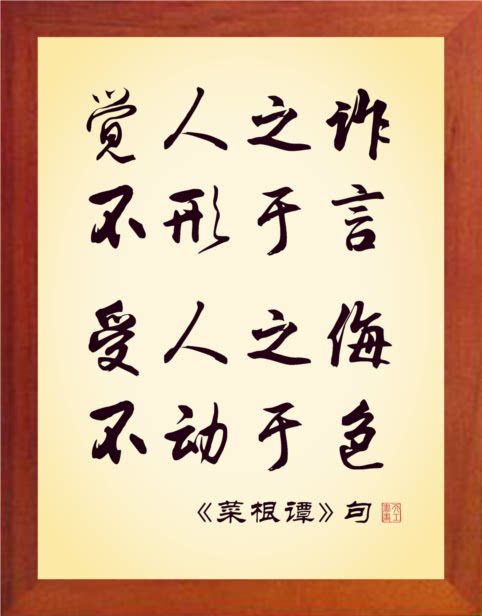 觉人之诈
不形于言
受人之侮
不动于色
《菜根谭》句